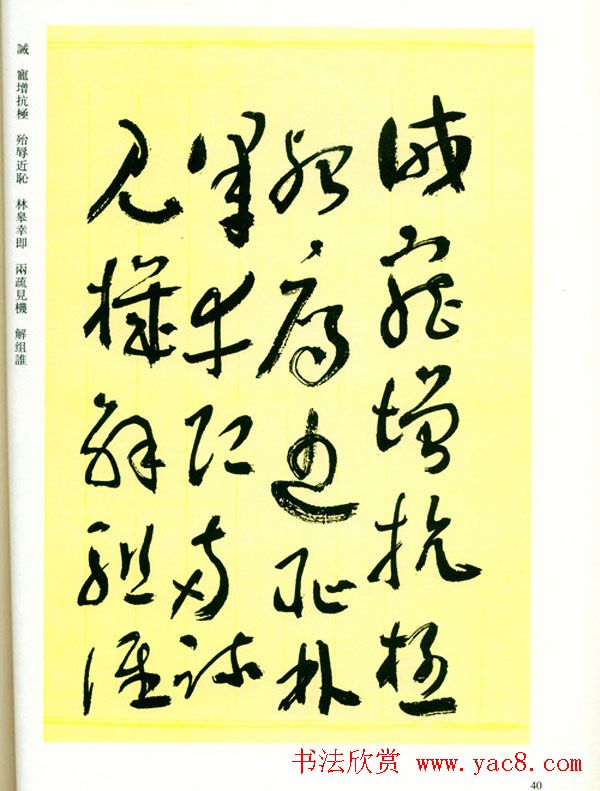 誡 寵增抗極 殆辱近恥 林皋幸即 兩疏見機 解组誰
誡寵增抗極
殆辱近恥林
皋幸即兩疏
見機解組誰
书法欣赏 www.yac8.com
40